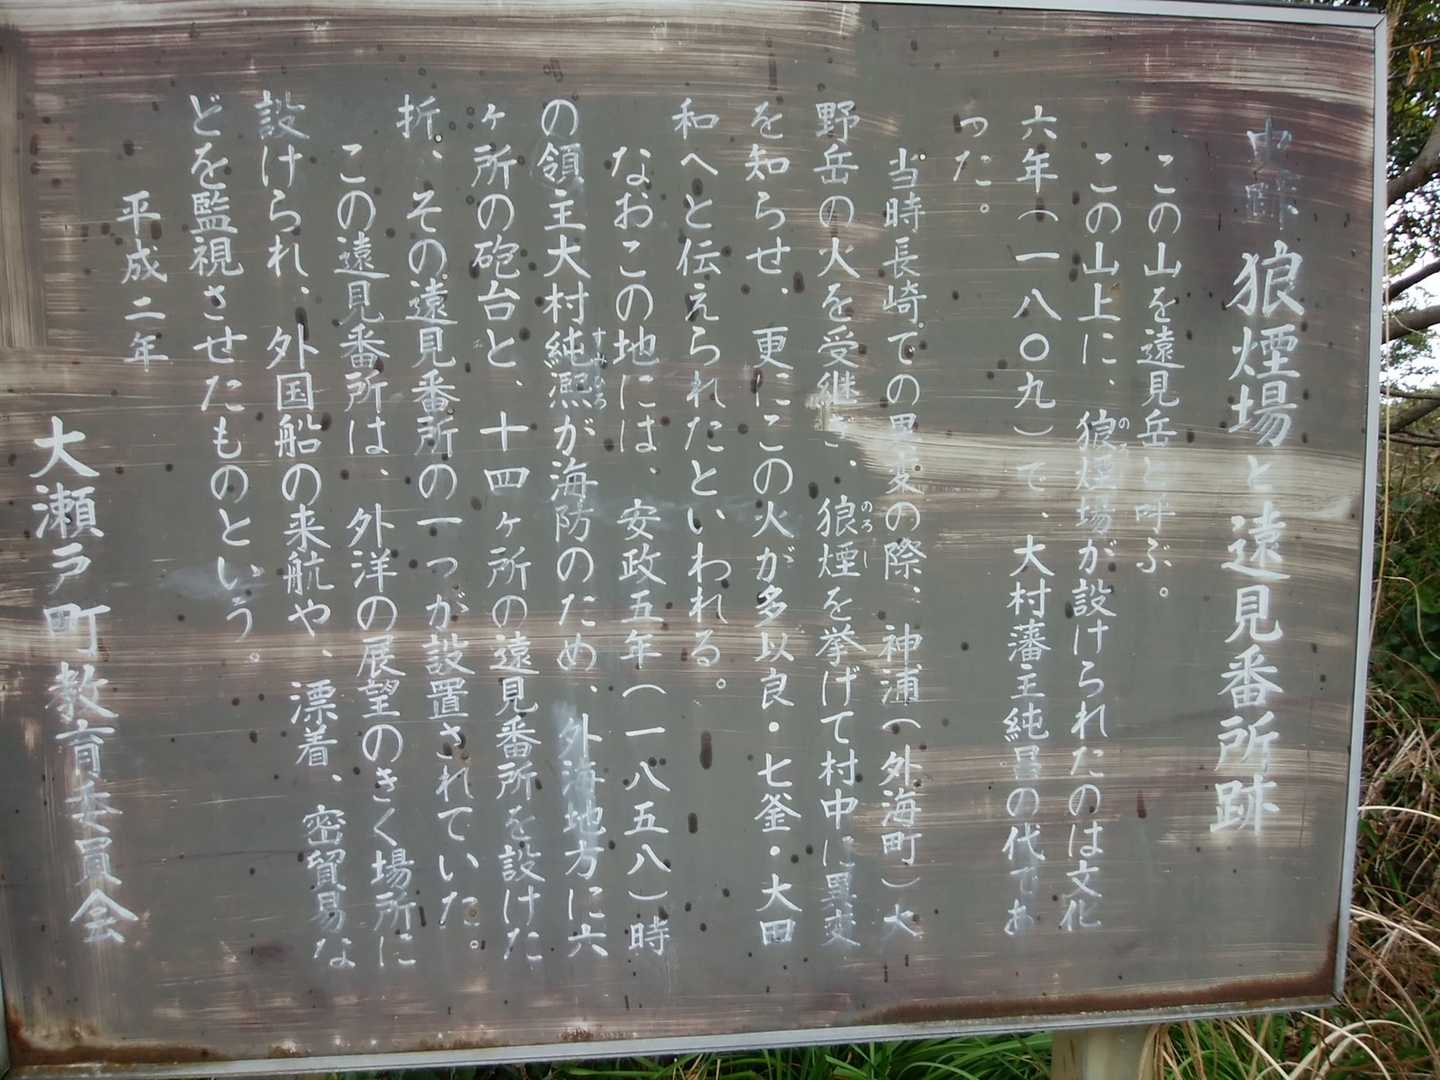 史跡 狼煙場と遠見番所跡
この山を遠見岳と呼ぶ。
この山上に、狼煙場が設けられたのは文化
のろし
六年(一八〇九)で、大村藩主純昌の代であ
った。
当時長崎での異変の際、神浦(外海町)大
野岳の火を受継ぎ、狼煙を挙げて村中に異変
のろし
を知らせ、更にこの火が多以良・七釜・大田
和へと伝えられたといわれる。
なおこの地には、安政五年(一八五八)時
の領主大村純熈が海防のため、外海地方に六
ヶ所の砲台と、十四ヶ所の遠見番所を設けた
折、その遠見番所の一つが設置されていた。
この遠見番所は、外洋の展望のきく場所に
設けられ、外国船の来航や、漂着、密貿易な
どを監視させたものという。
平成二年
大瀬戸町教育委員会